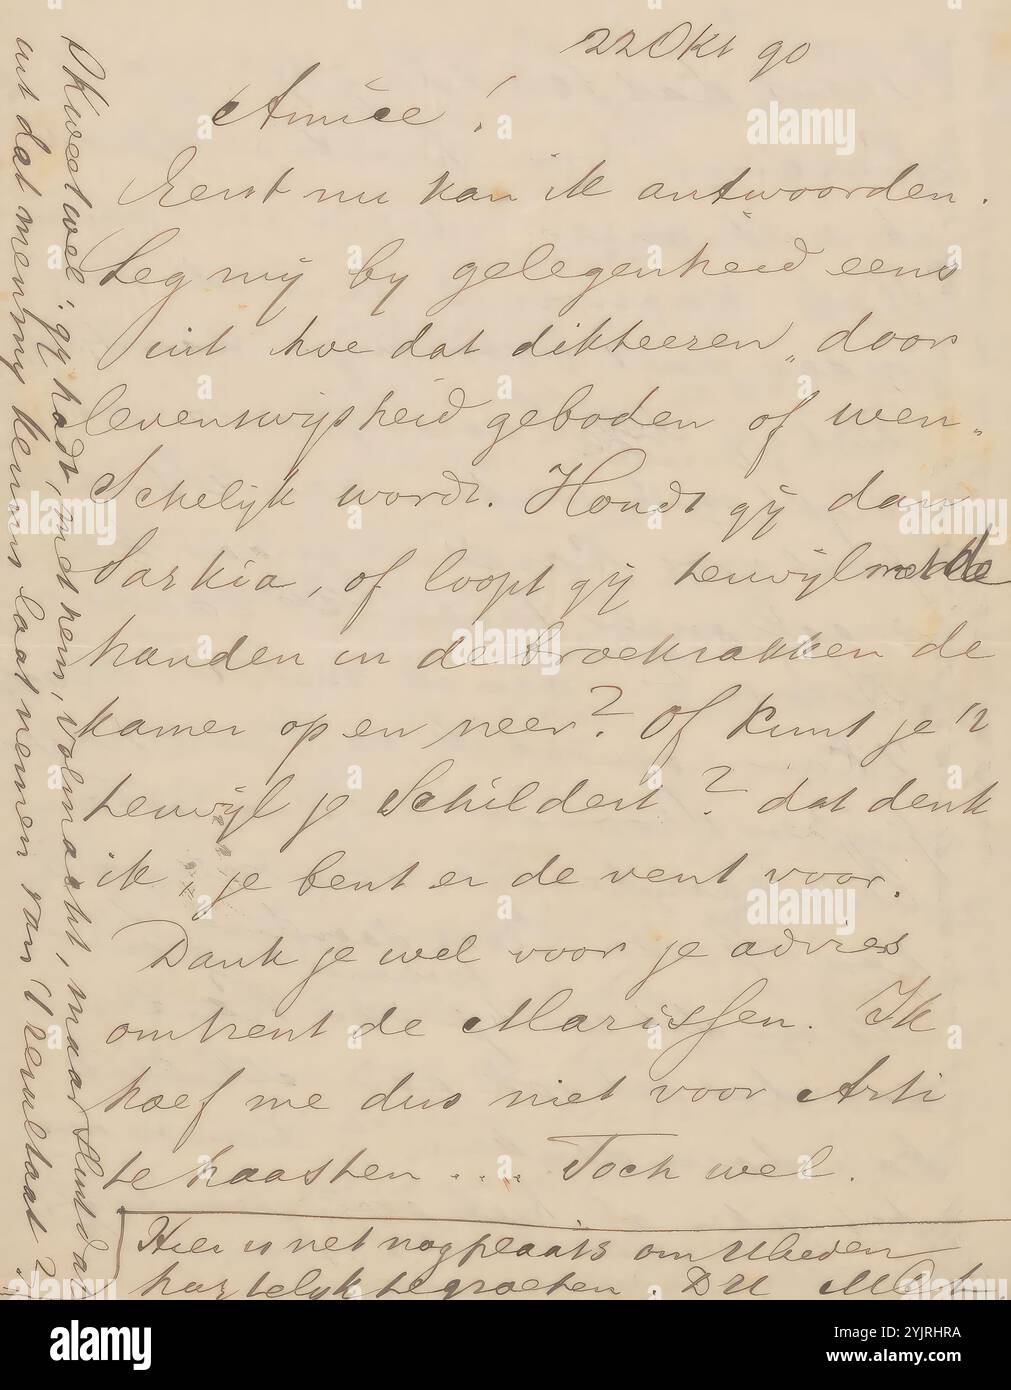 22 Okt 90
Amice!
Eerst nu kan ik antwoorden.
Leg mij by gelegenheid eens
uit hoe dat dikteeren „door
levenswijsheid geboden of wen„
schelijk wordt. Houdt gij dan
Saskia, of loopt gij terwijl met de
handen in de broekzakken de
kamer op en neer? Of kunt je 't
terwijl je schildert? dat denk
ik je bent er de vent voor.
Dank je wel voor je advies
omtrent de Marissen. Ik
hoef me dus niet voor Arti
te haasten .... Toch wel.
Hier is net nog plaats om Ulieden
hartelijk te groeten. DU
Ik weet wel: gij hadt, met hem, volmacht, maar sluit dat
uit dat men my kennis laat nemen van 't resultaat?
alamy
alamy
Image ID: 2YJRHRA
www.alamy.com